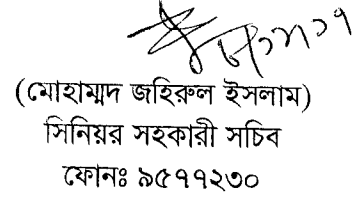 (মোহাম্মদ জহিরুল ইসলাম)
সিনিয়র সহকারী সচিব
ফোনঃ ৯৫৭৭২৩০